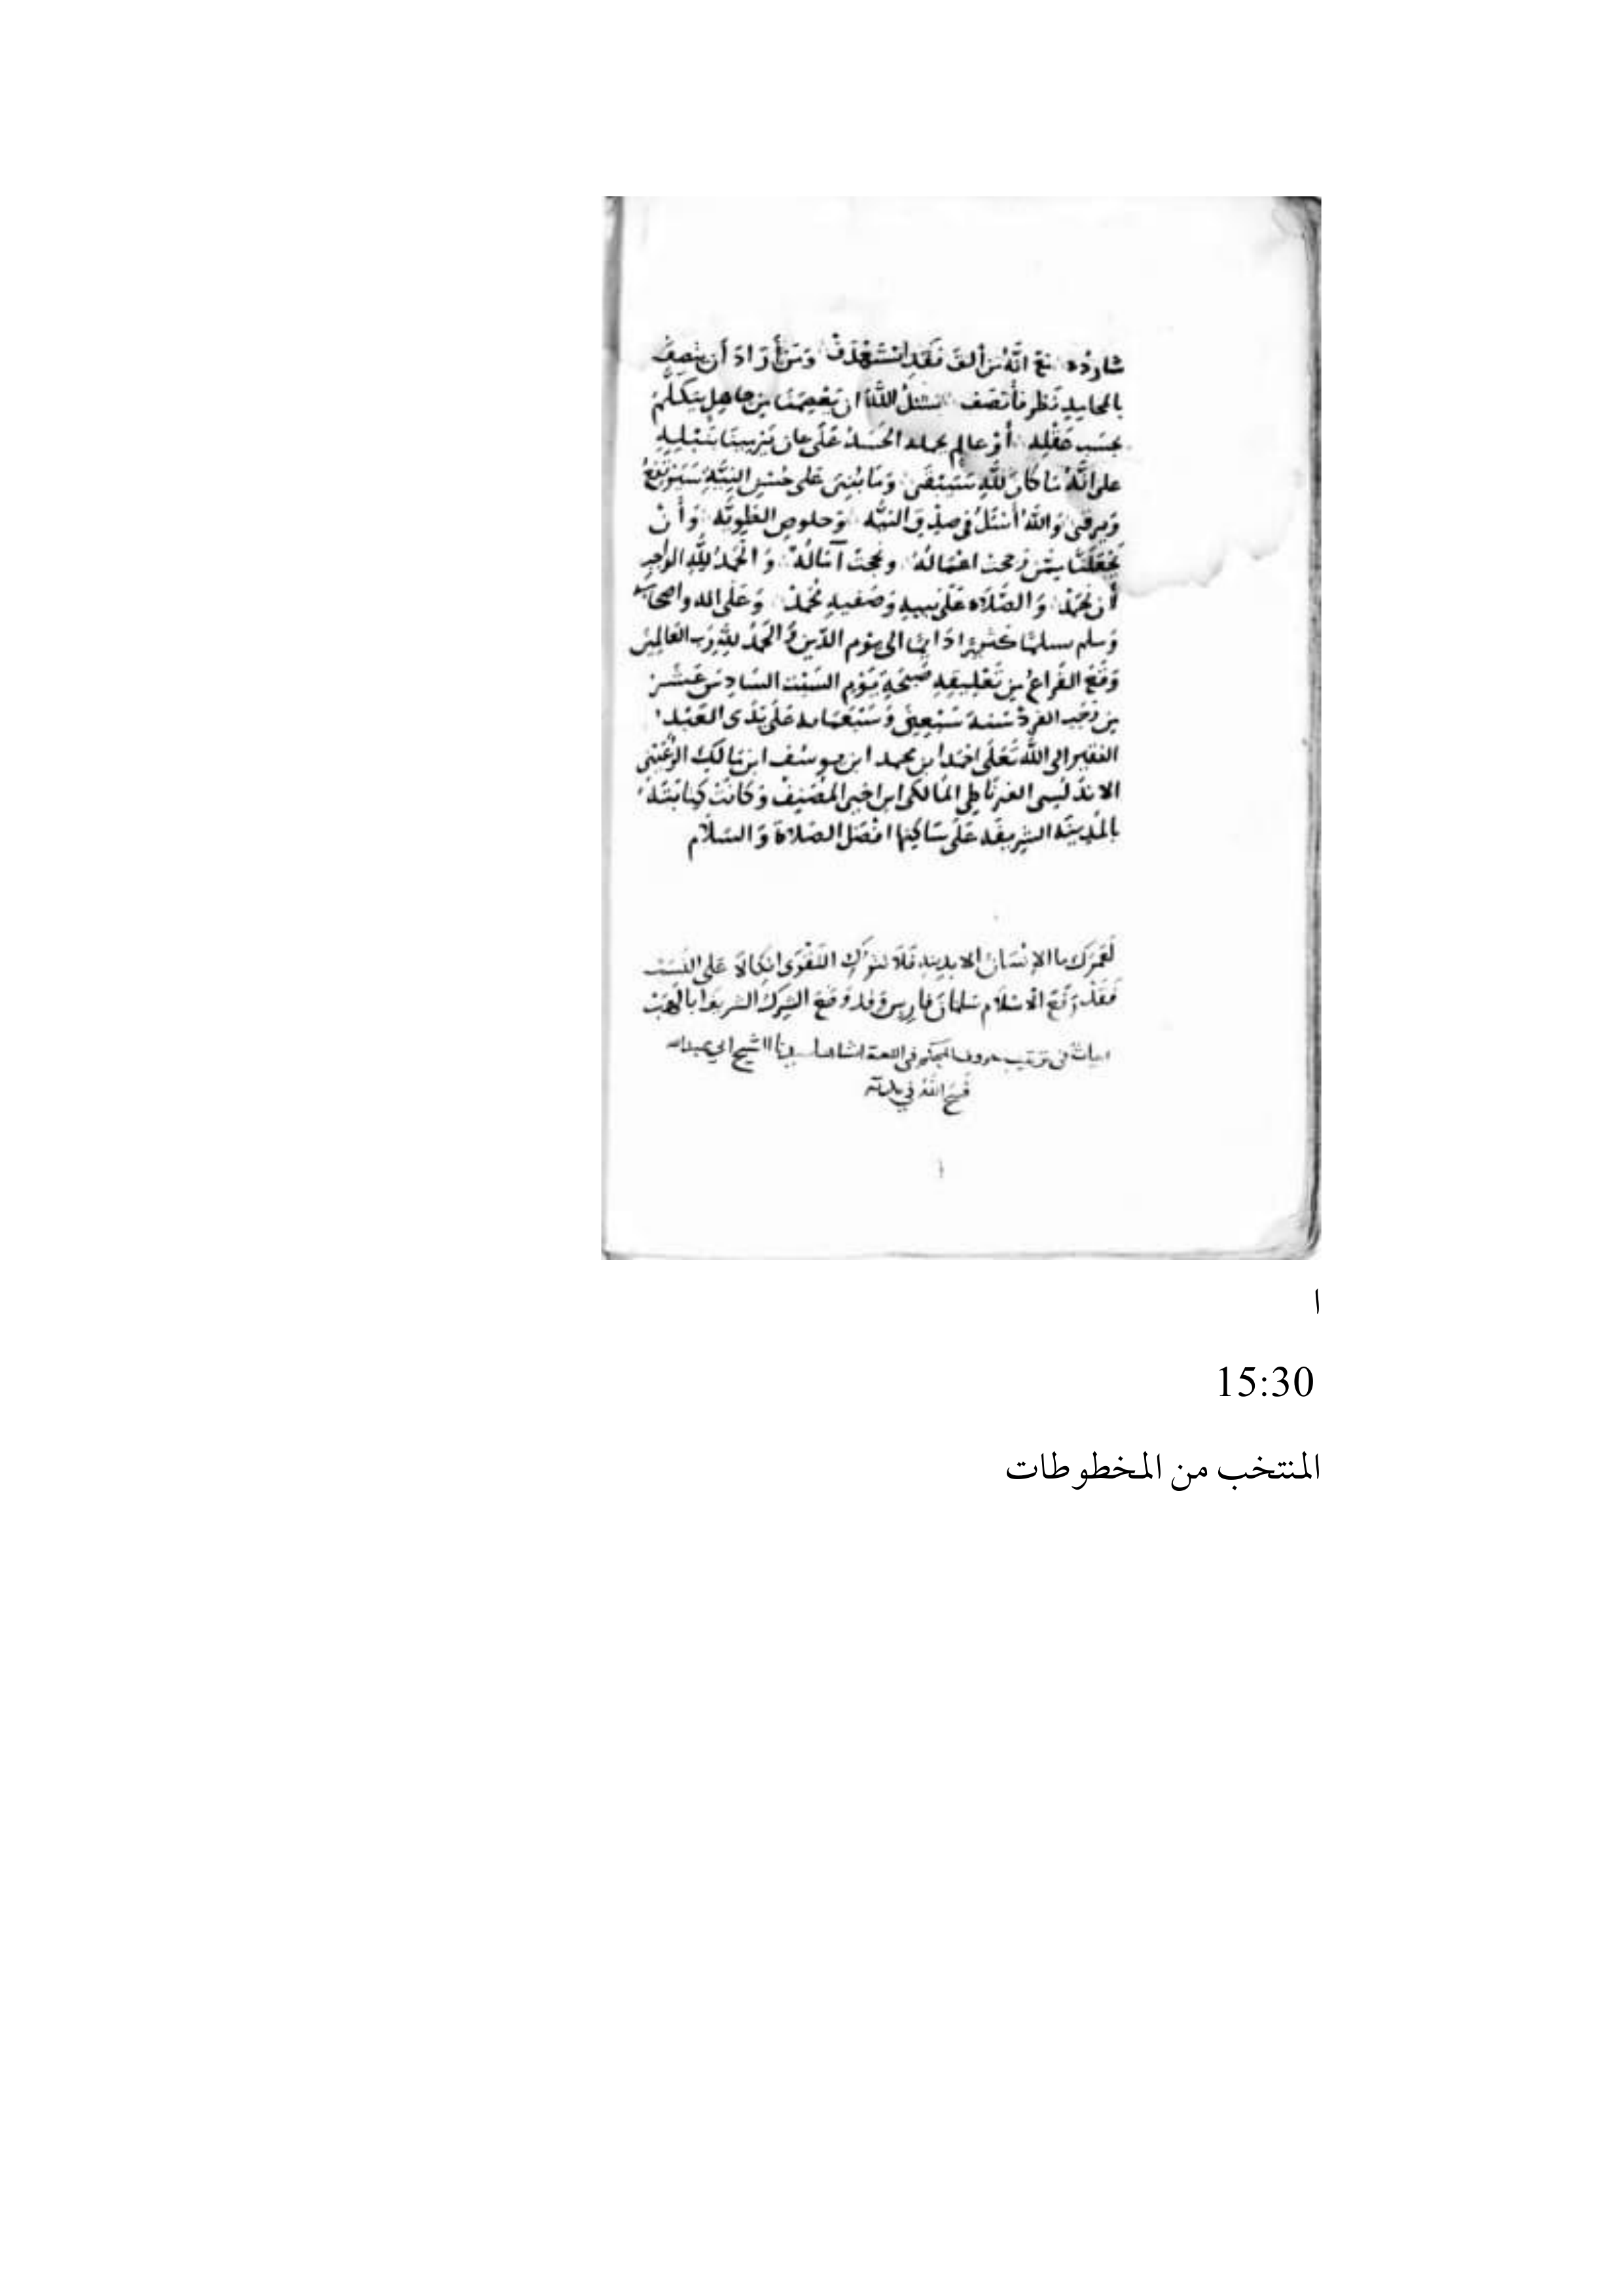 شارده مع أنه من ألف فقد استهدف ومن أراد أن ينصف
بالمحاسد نظر فأنصف نسئل الله أن يعصمنا من جاهل يتكلم
بحسب عقله أو عالم يحمله الحسد على
على أنه ما كان لله سيبقى وما بني على حسن النية سيرتفع
ويرقى والله أسئل في صدق النيه وخلوص الطويه وأن
يجعلنا ممن رجحت اعماله ونجحت آماله والحمد لله الواجب
أن نحمد والصلاة على نبيه وصفيه محمد وعلى اله واصحابه
وسلم تسليما كثيرا دائما الى يوم الدين والحمد لله رب العالمين
وقع الفراغ من تعليقه صبيحة يوم السبت السادس عشر
من رجب الفرد سنة سبعين وسبعمايه على يدى العبد
الفقير الى الله تعلى احمد ابن محمد ابن يوسف ابن مالك الرعيني
الاندلسى الغرناطى المالكى ابن اخى المصنف وكانت كتابته
بالمدينة الشريفه على ساكنها افضل الصلاة والسلام
لعمرك ما الإنسان الا بدينه فلا تترك التقوى اتكالا على النسب
فقد رفع الاسلام سلمان فارس وقد وضع الشرك الشريف ابا لهب
ابيات فى ترتيب حروف المحكم فى اللغة انشاها سيدنا الشيخ ابى عبد الله
فسح الله في مدته
ا
15:30
المنتخب من المخطوطات